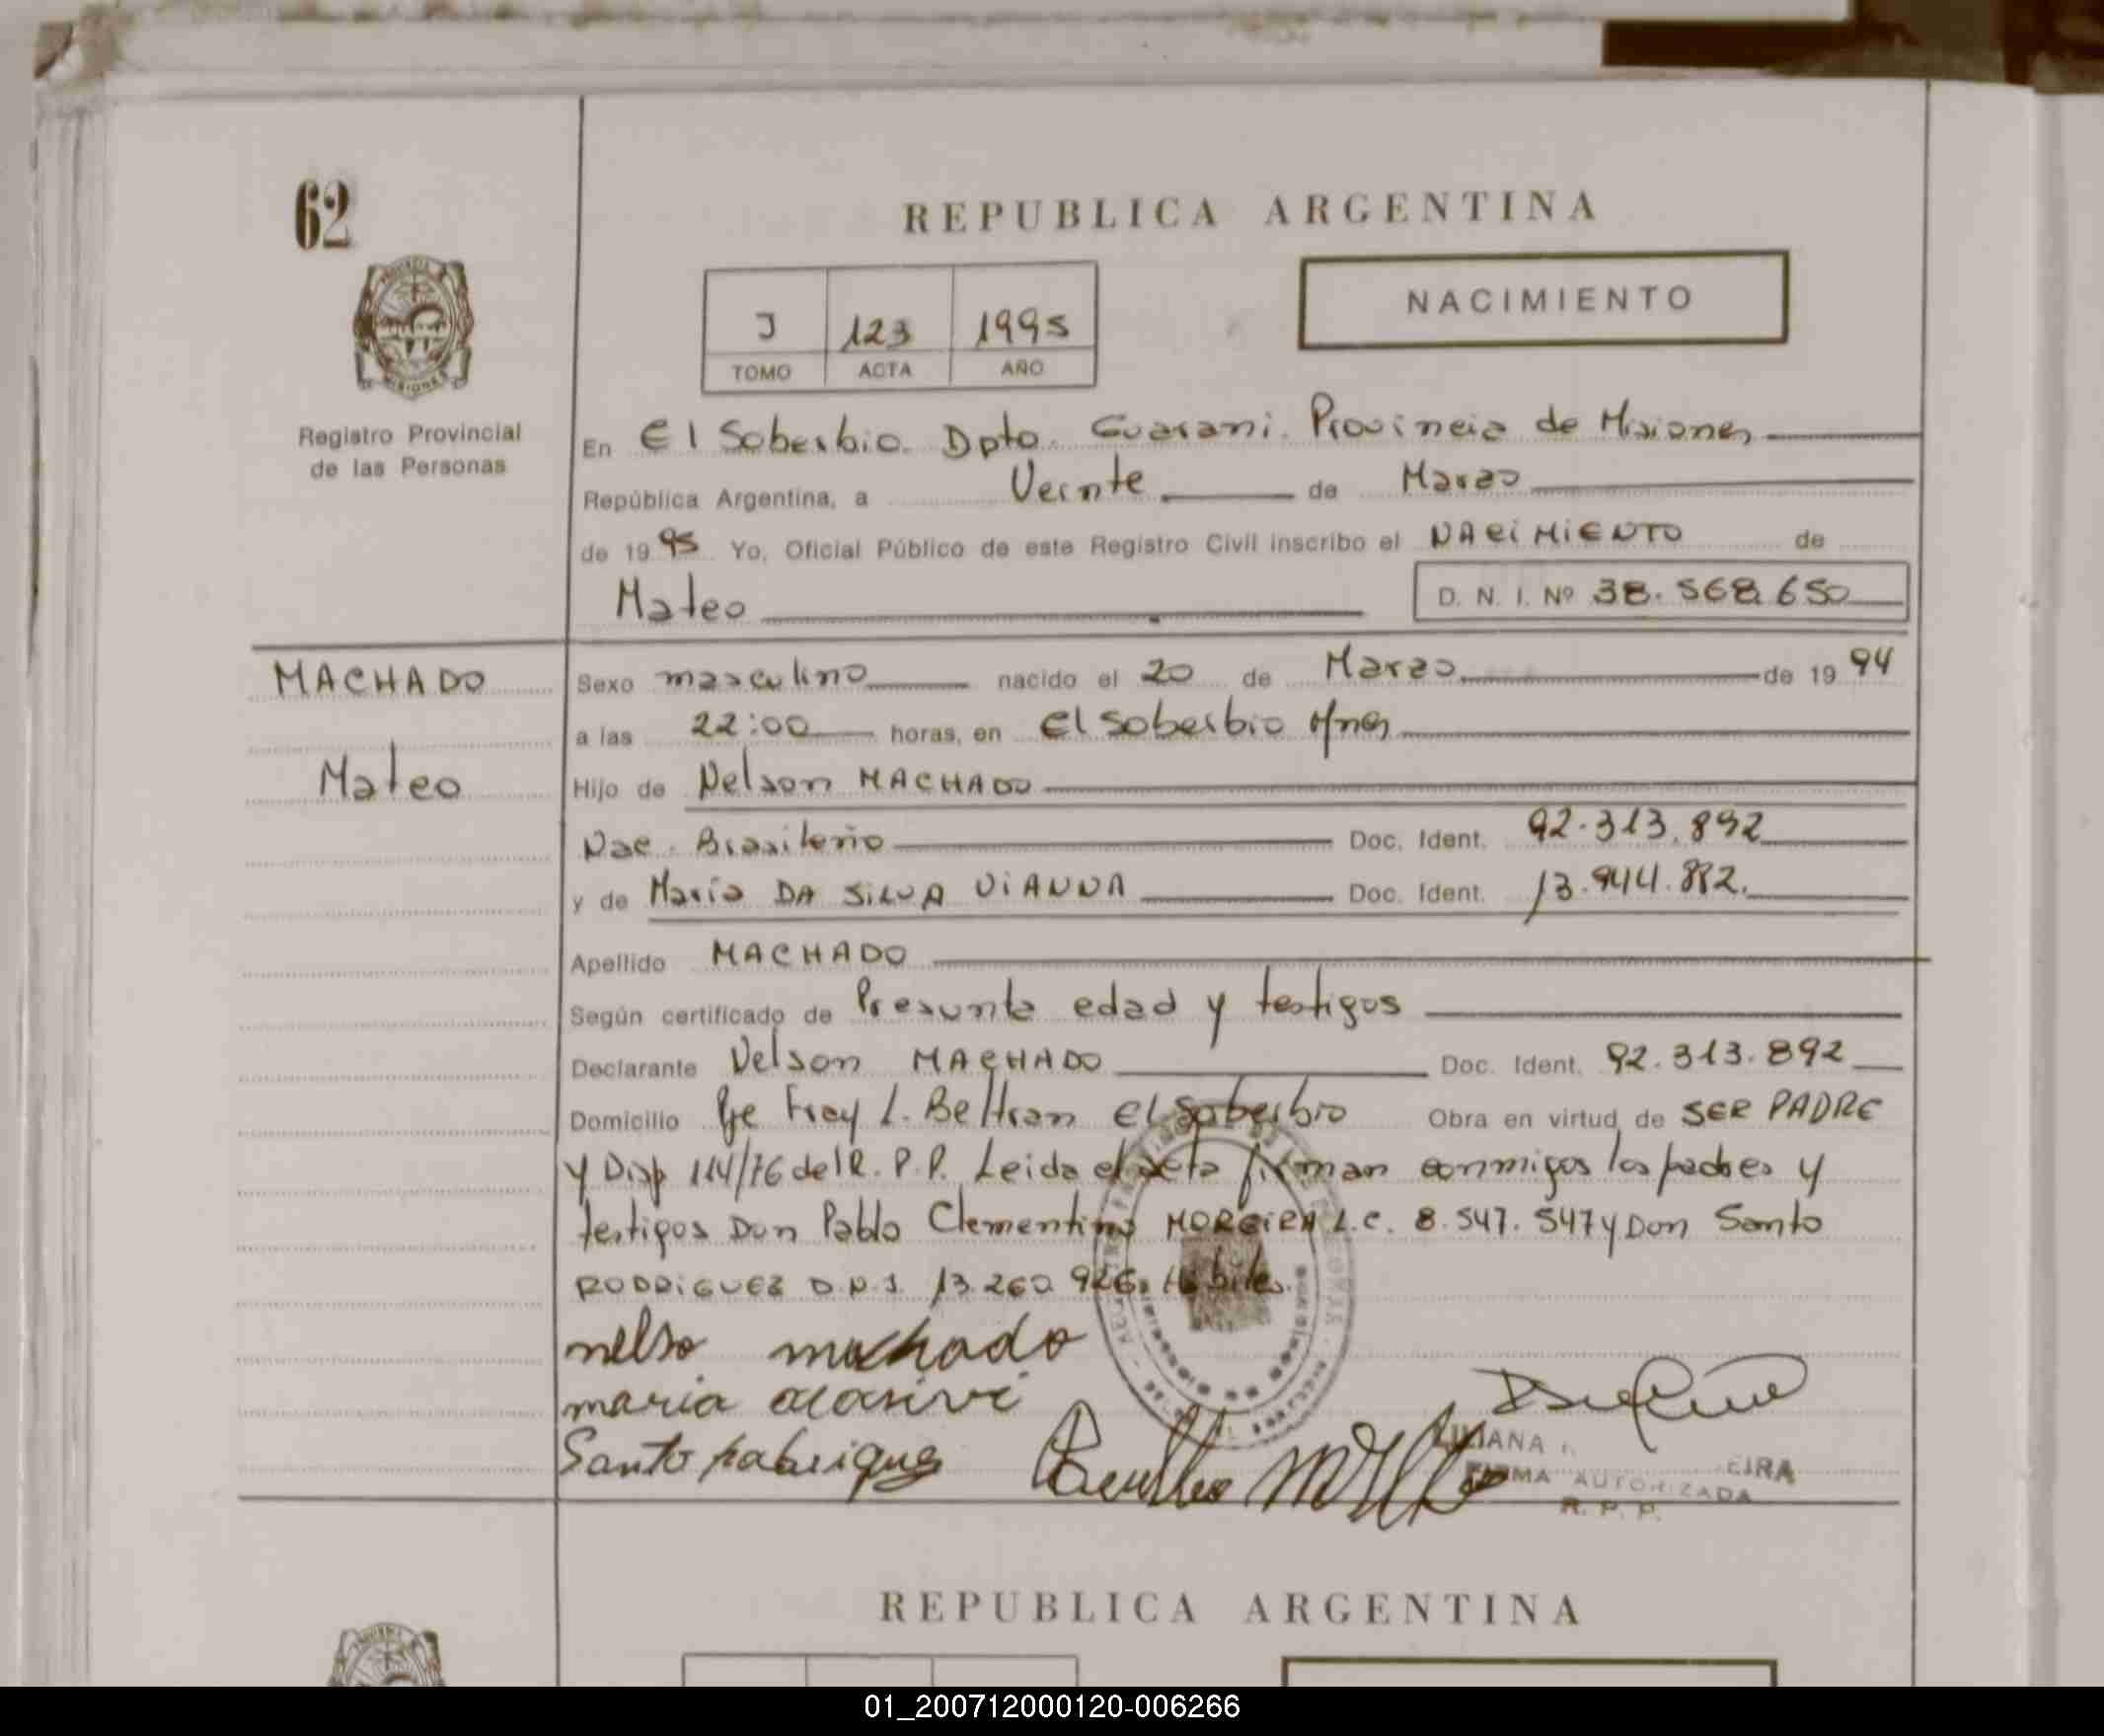 62
REPUBLICA ARGENTINA
NACIMIENTO
J 123 1995
TOMO ACTA AÑO
Registro Provincial
de las Personas
En El Soberbio. Dpto. Guarani. Provincia de Misiones
República Argentina, a Veinte de Marzo
de 1995 Yo, Oficial Público de este Registro Civil inscribo el NACIMIENTO de
Mateo D. N. I. Nº 38.568.650
MACHADO
Mateo
Sexo masculino nacido el 20 de Marzo de 1994
a las 22:00 horas, en El Soberbio Mnes
Hijo de Nelson MACHADO
Nac. Brasileño Doc. Ident. 92.313.892
y de María DA SILVA VIANNA Doc. Ident. 13.944.882.
Apellido MACHADO
Según certificado de Presunta edad y testigos
Declarante Nelson MACHADO Doc. Ident. 92.313.892
Domicilio Fray L. Beltran El Soberbio Obra en virtud de SER PADRE
y Disp 114/76 del R. P. P. Leida el acta firman conmigos los padres y
testigos Don Pablo Clementino MOREIRA L.C. 8.547.547 y Don Santo
RODRIGUEZ D.N.I. 13.260.926. Habiles.
nelso machado
maria
Santo
LILIANA EIRA
FIRMA AUTORIZADA
R. P. P.
REPUBLICA ARGENTINA
01_200712000120-006266